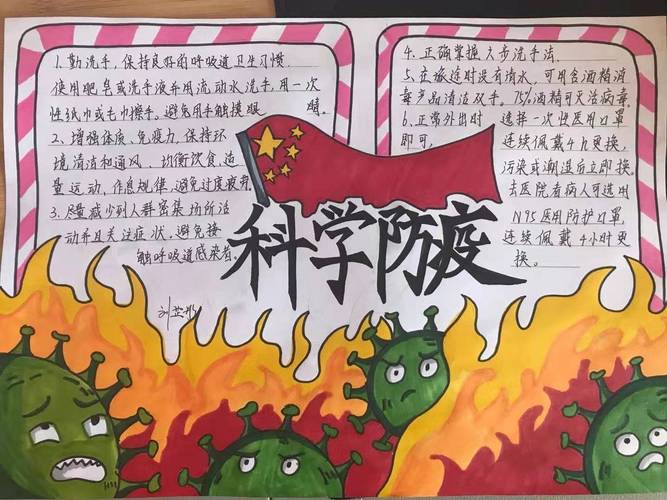 1.勤洗手,保持良好的呼吸道卫生习惯
使用肥皂或洗手液并用流动水洗手,用一次
性纸巾或毛巾擦手。避免用手触摸眼 睛。
2、增强体质、免疫力,保持环
境清洁和通风、均衡饮食、适
量运动,作息规律,避免过度疲劳
3、尽量减少到人群密集场所活
动并且关注症状,避免接
触呼吸道感染者。
4.正确掌握六步洗手法。
5.在旅途时没有清水,可用含酒精消
毒产品清洁双手。75%酒精可灭活病毒。
6、正常外出时 选择一次性医用口罩
即可, 连续佩戴4h更换,
污染或潮湿后立即更换。
去医院看病人可选用
N95医用防护口罩,
连续佩戴4小时更
换。
科学防疫